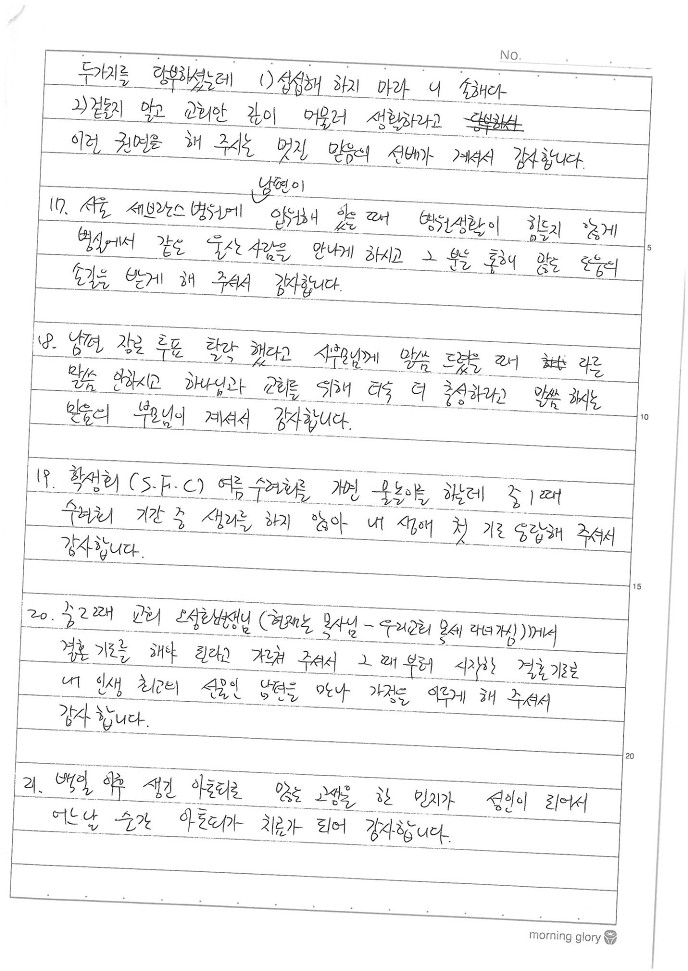 No.
두가지를 당부하셨는데 1) 섭섭해 하지 마라 니 손해다
2) 겉돌지 말고 교회안 깊이 머물러 생활하라고 당부하셔
이런 권면을 해 주시는 멋진 믿음의 선배가 계셔서 감사합니다.
남편이
17. 서울 세브란스병원에 입원해 있을 때 병원생활이 힘들지 않게
병실에서 같은 울산사람을 만나게 하시고 그 분을 통해 많은 도움의
손길을 받게 해 주셔서 감사합니다.
18. 남편 장로 투표 탈락 했다고 시부모님께 말씀 드렸을 때 다른
말씀 안하시고 하나님과 교회를 위해 더욱 더 충성하라고 말씀 하시는
믿음의 부모님이 계셔서 감사합니다.
19. 학생회 (S.F.C) 여름수련회를 가면 물놀이를 하는데 중1때
수련회 기간 중 생리를 하지 않아 내 생애 첫 기도 응답해 주셔서
감사합니다.
20. 중2때 교회 오성환선생님 (현재는 목사님 - 우리교회 목세 다녀가심)께서
결혼기도를 해야 된다고 가르쳐 주셔서 그 때부터 시작한 결혼기도로
내 인생 최고의 선물인 남편을 만나 가정을 이루게 해 주셔서
감사합니다.
21. 백일 이후 생긴 아토피로 많은 고생을 한 민지가 성인이 되어서
어느날 순간 아토피가 치료가 되어 감사합니다.
5
10
15
20
morning glory